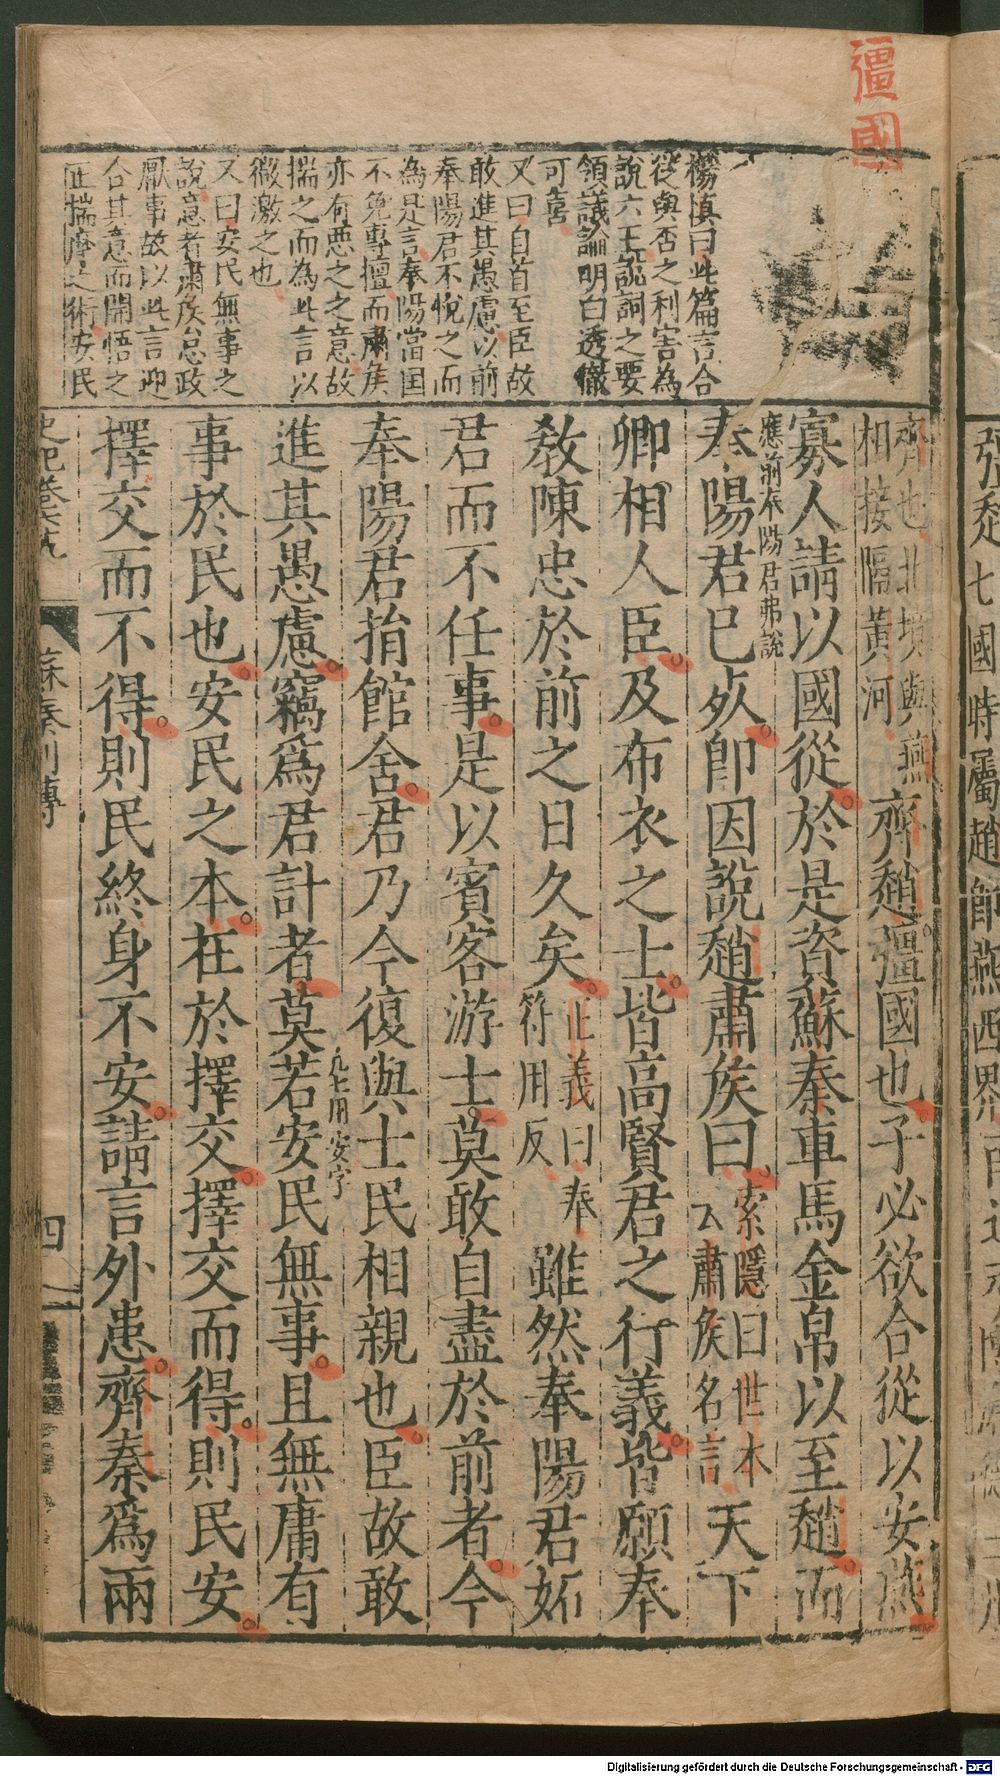 彊國
楊慎曰此篇言合
從與否之利害為
說六王說詞之要
領議論明白透徹
可喜
又曰自首至臣故
敢進其愚慮以前
奉陽君不悅之而
為是言奉陽當国
不免專擅而肅矦
亦有惡之之意故
揣之而為此言以
微激之也
又曰安民無事之
說意者肅矦怠政
厭事故以此言迎
合其意而開悟之
正揣摩之術安民
齊也北境與燕
相接隔黃河
齊趙彊國也子必欲合從以安燕
寡人請以國從於是資蘇秦車馬金帛以至趙而
應前奉陽君弗說
奉陽君已死卽因說趙肅矦曰
索隱曰世本
云肅矦名言
天下
卿相人臣及布衣之士皆高賢君之行義皆願奉
敎陳忠於前之日久矣
正義曰奉
符用反
雖然奉陽君妬
君而不任事是以賓客游士莫敢自盡於前者今
奉陽君捐館舍君乃今復與士民相親也臣故敢
凡七用安字
進其愚慮竊爲君計者莫若安民無事且無庸有
事於民也安民之本在於擇交擇交而得則民安
擇交而不得則民終身不安請言外患齊秦爲兩
史記卷六九
蘇秦列傳
四
張 七國時屬趙 卽燕西界
Digitalisierung gefördert durch die Deutsche Forschungsgemeinschaft - DFG